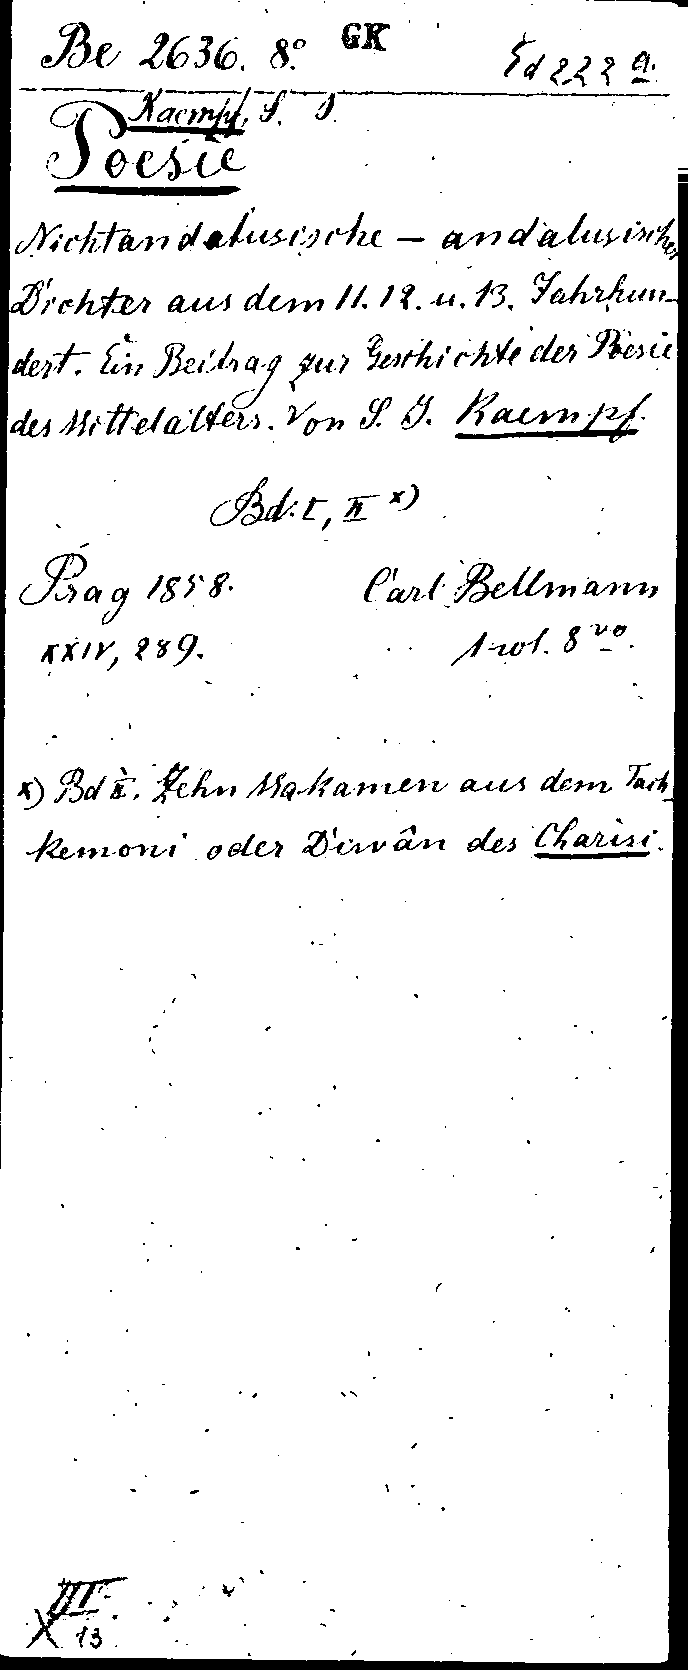 Be 2636. 8.° GK Ed 222 a.
Kaempf, S. J.
Poesie
Nichtandalusische – andalusischer
Dichter aus dem 11. 12. u. 13. Jahrhun-
dert. Ein Beitrag zur Geschichte der Poesie
des Mittelalters. Von S. J. Kaempf.
Bd. I, II x)
Prag 1858. Carl Bellmann
XXIV, 289. 1 vol. 8vo.
x) Bd II. Zehn Makamen aus dem Tach-
kemoni oder Diwân des Charisi.
III
X 13